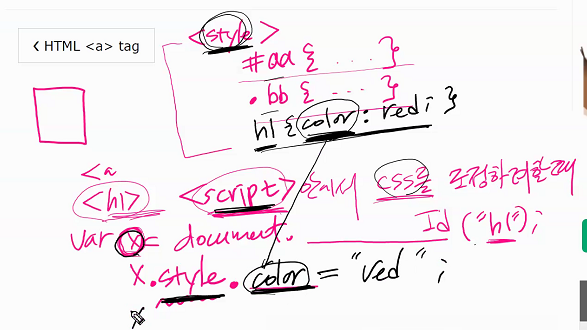 ❮ HTML <a> tag
<style>
#aa { ···· }
.bb { ···· }
h1 { color : red ; }
<a
<h1> <script> 안에서 css를 조정하려할때
var x = document. Id ("h1");
x.style.color = "red" ;